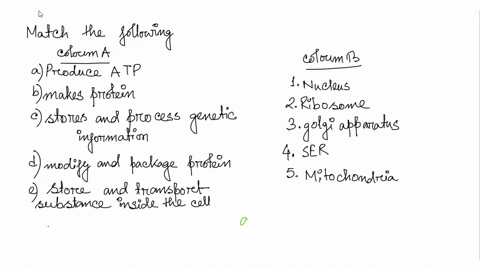 Match the following
coloum A
a) Produce ATP
b) makes protein
c) stores and process genetic
information
d) modify and package protein
e) store and transport
substance inside the cell
coloum B
1. Nucleus
2. Ribosome
3. golgi apparatus
4. SER
5. Mitochondria
a